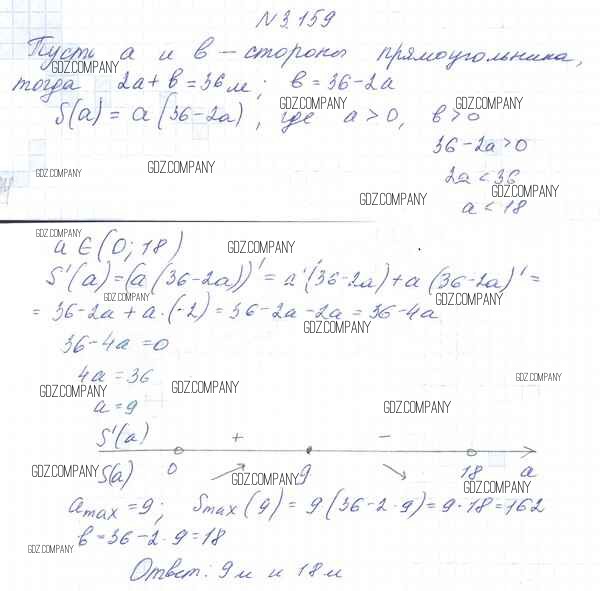 N 3.159
Пусть a и b – стороны прямоугольника,
GDZ.COMPANY
тогда 2a + b = 36 м; b = 36 - 2a
GDZ.COMPANY GDZ.COMPANY
S(a) = a(36 - 2a), где a > 0, b > 0
36 - 2a > 0
GDZ.COMPANY GDZ.COMPANY
2a < 36
GDZ.COMPANY GDZ.COMPANY
a < 18
GDZ.COMPANY
a ∈ (0; 18) GDZ.COMPANY
S'(a) = (a(36 - 2a))' = a'(36 - 2a) + a(36 - 2a)' =
GDZ.COMPANY GDZ.COMPANY
= 36 - 2a + a·(-2) = 36 - 2a - 2a = 36 - 4a
GDZ.COMPANY
36 - 4a = 0
4a = 36 GDZ.COMPANY
GDZ.COMPANY GDZ.COMPANY
a = 9 GDZ.COMPANY
S'(a) + –
GDZ.COMPANY GDZ.COMPANY
S(a) 0 9 18 a
GDZ.COMPANY
a max = 9; S max (9) = 9·(36 - 2·9) = 9·18 = 162
b = 36 - 2·9 = 18
GDZ.COMPANY
Ответ: 9 м и 18 м